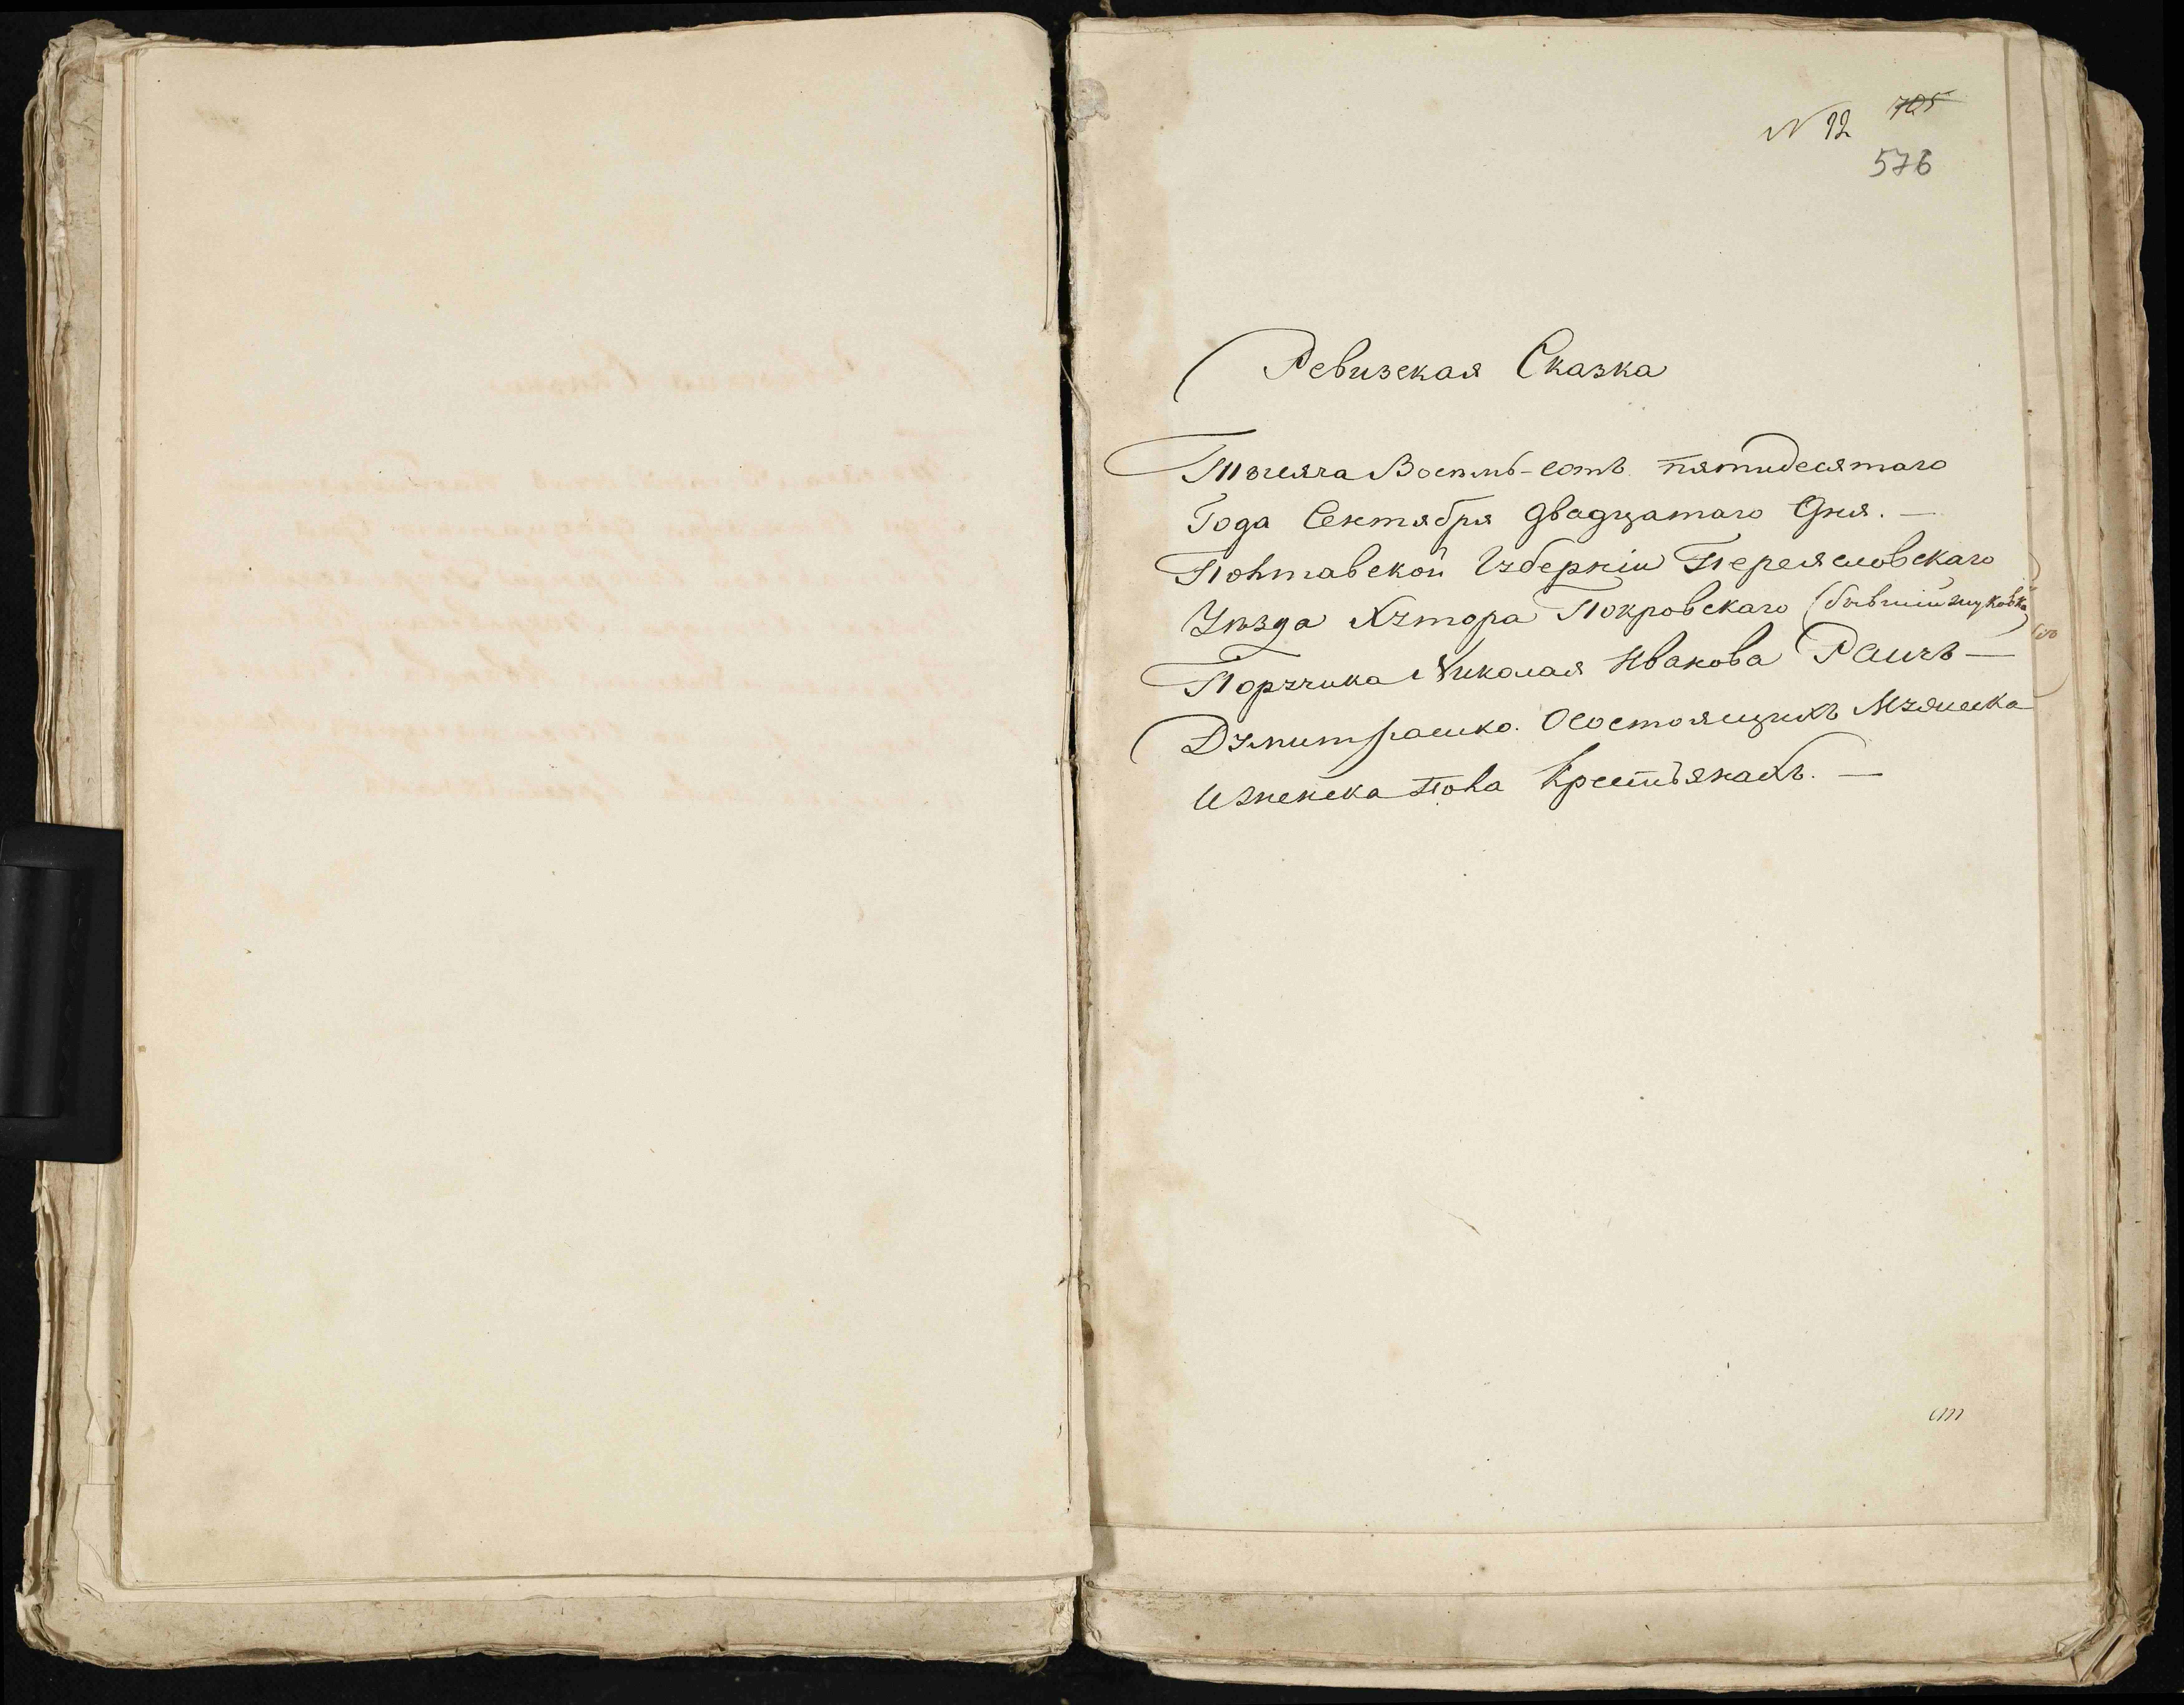 N 12 705
576
Ревизская Сказка
Тысяча Восемь-сотъ пятидесятаго
Года Сентября двадцатаго Дня. —
Полтавской Губерніи Переясловскаго
Уѣзда Хутора Покровскаго (бывший
Порутчика Николая Иванова Раичъ —
Думитрашко. Осостоящихъ Мужеска
Иженска Пола Крестьянахъ. —